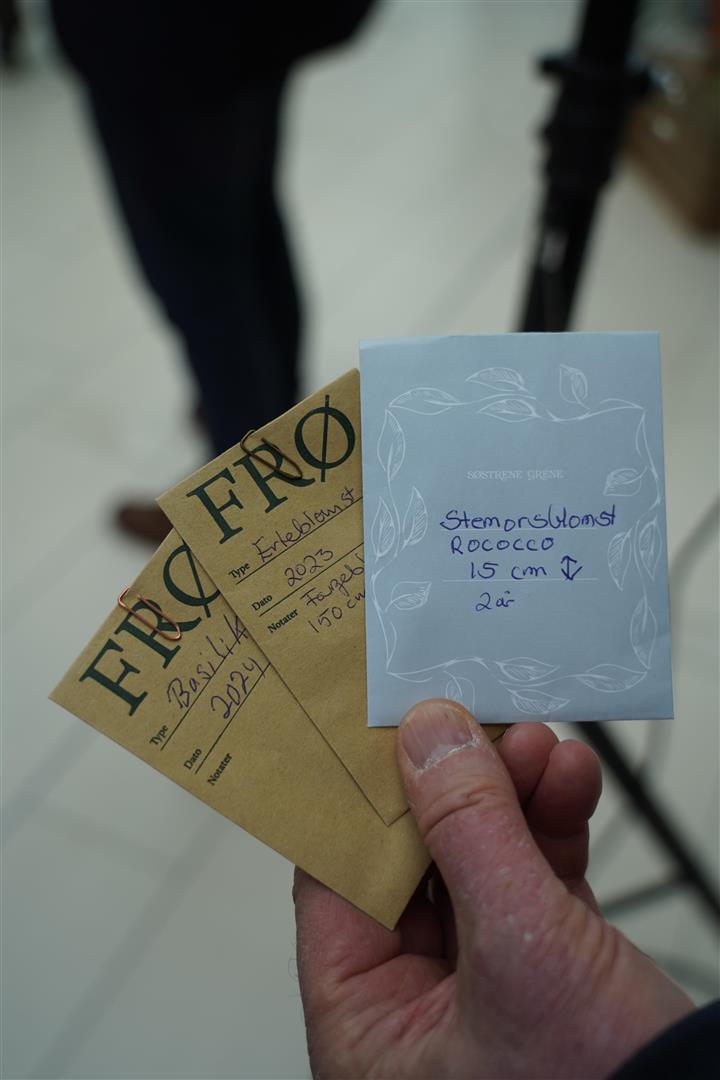 FRØ
Type Basilik
Dato 2024
Notater
FRØ
Type Erteblomst
Dato 2023
Notater
150 cm
SØSTRENE GRENE
Stemorsblomst
ROCOCCO
15 cm ↕
2 år